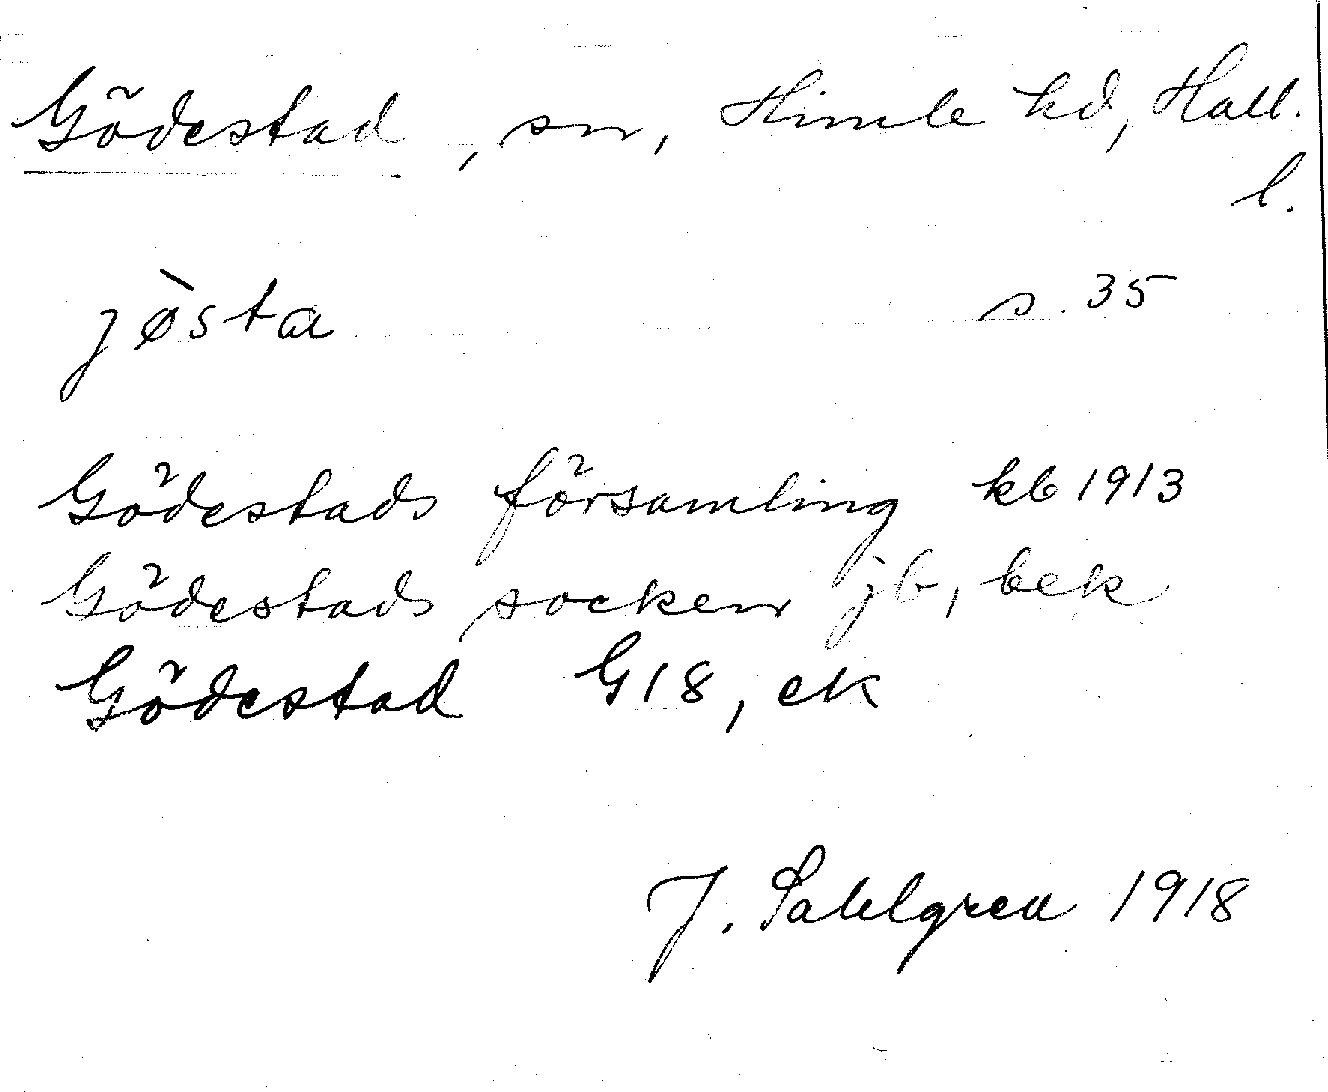 Gödestad, sn, Himle hd, Hall.
l.
jø̀sta s. 35
Gödestads församling kb 1913
Gödestads socken jb, bek
Gödestad G18, ek
J. Sahlgren 1918